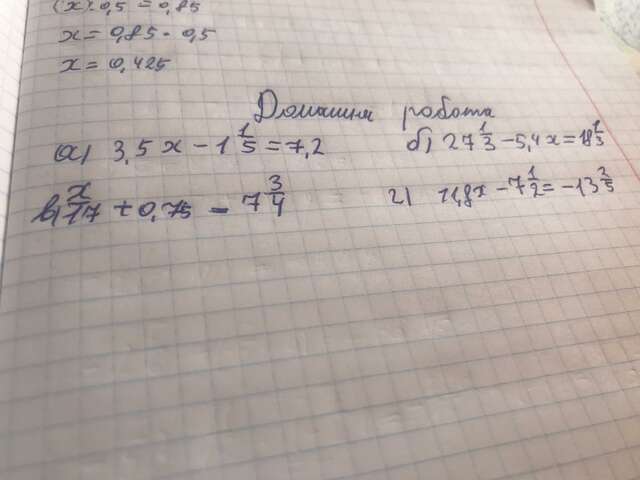 (x):0,5 = 0,85
x = 0,85 · 0,5
x = 0,425
Домашня робота
а) 3,5x - 1 1/5 = 7,2 б) 27 1/3 - 5,4x = 18 1/3
в) x/17 + 0,75 = 7 3/4 г) 11,8x - 7 1/2 = -13 2/5